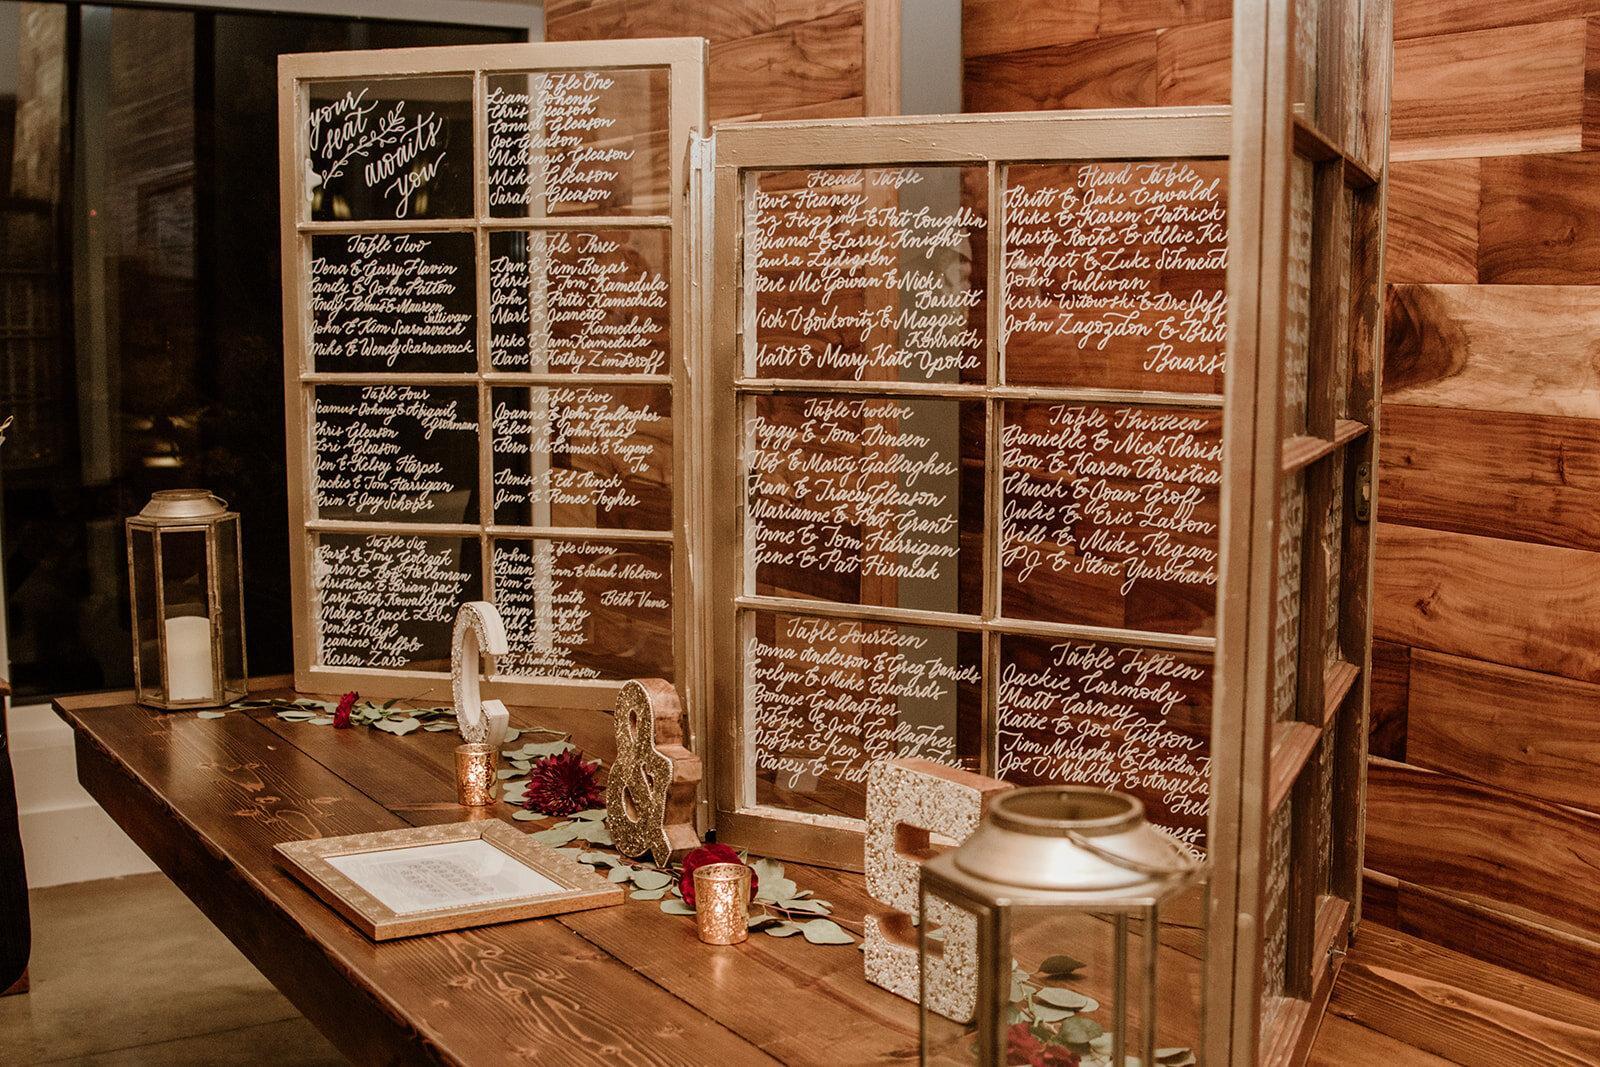 your
seat
awaits
you
Table One
Liam Doheny
Chris Gleason
Connor Gleason
Joe Gleason
McKenzie Gleason
Mike Gleason
Sarah Gleason
Table Two
Dena & Garry Flavin
Candy & John Patton
Andy & Maureen
Sullivan
John & Kim Scarnavack
Mike & Wendy Scarnavack
Table Three
Dan & Kim Bazar
Chris & Tom Kamedula
John & Patti Kamedula
Mark & Jeanette
Kamedula
Mike & Tam Kamedula
Dave & Kathy Zimberoff
Table Four
Seamus Doheny & Abigail
Chris Gleason
Lori Gleason
Jen & Kelsey Harper
Jackie & Tom Harrigan
Erin & Jay Schober
Table Five
Joanne & John Gallagher
Eileen & John Kulis
Bern McCormick & Eugene
Tu
Denise & Ed Rinck
Jim & Renee Togher
Table Six
Barb & Tony
Karen & Bob Holdman
Christina & Brian Jack
Mary Beth Kowalczyk
Marge & Jack Love
Denise
Jeanine Ruffolo
Karen Zaro
Table Seven
John
Brian Finn & Sarah Nelson
Tim Foley
Kevin Konrath
Beth Vana
Karyn Murphy
Pawlak
Michelle Prieto
Mike Rogers
Pat Shanahan
Therese Simpson
Head Table
Steve Heaney
Liz Higgins & Pat Coughlin
Briana & Larry Knight
Laura Lydigsen
Steve McGowan & Nicki
Barrett
Nick & Maggie
Konrath
Matt & Mary Kate Opoka
Head Table
Britt & Jake Oswald
Mike & Karen Patrick
Marty Roche & Allie Ki
Bridget & Luke Schneid
John Sullivan
Kerri Witowski & Dre Jeff
John Zagozdon & Brit
Baarst
Table Twelve
Peggy & Tom Dineen
Deb & Marty Gallagher
Ean & Tracy Gleason
Marianne & Pat Grant
Anne & Tom Harrigan
Gene & Pat Hirniak
Table Thirteen
Danielle & Nick Christ
Don & Karen Christia
Chuck & Joan Groff
Julie & Eric Larson
Jill & Mike Regan
PJ & Steve Yurchak
Table Fourteen
Donna Anderson & Greg Daniels
Evelyn & Mike Edwards
Bonnie Gallagher
Debbie & Jim Gallagher
Debbie & Ken Gallagher
Stacey & Ted
Table Fifteen
Jackie Carmody
Matt Carney
Katie & Joe Gibson
Tim Murphy & Caitlin
Joe O'Malley & Angela
C
&
S